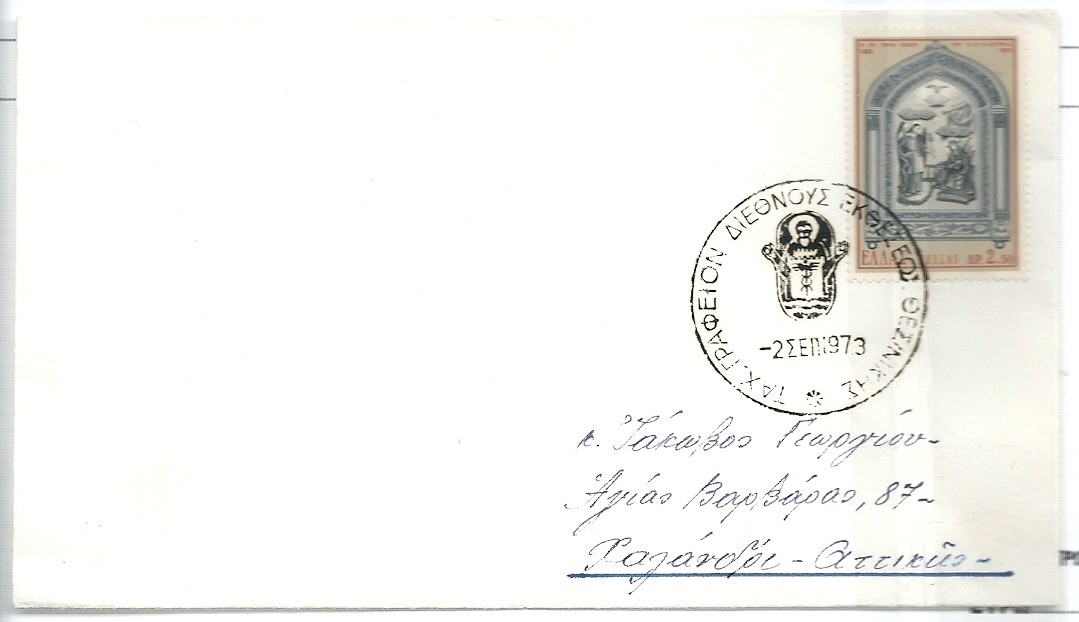 ΕΛΛΑΣ HELLAS ΔΡ 2.50
ΤΑΧ. ΓΡΑΦΕΙΟΝ ΔΙΕΘΝΟΥΣ ΕΚΘΕΣΕΩΣ ΘΕΣ/ΝΙΚΗΣ
-2 ΣΕΠ 1973
κ. Ἰάκωβος Γεωργίου-
Ἁγίας Βαρβάρας, 87-
Χαλάνδρι - Αττικῆς-